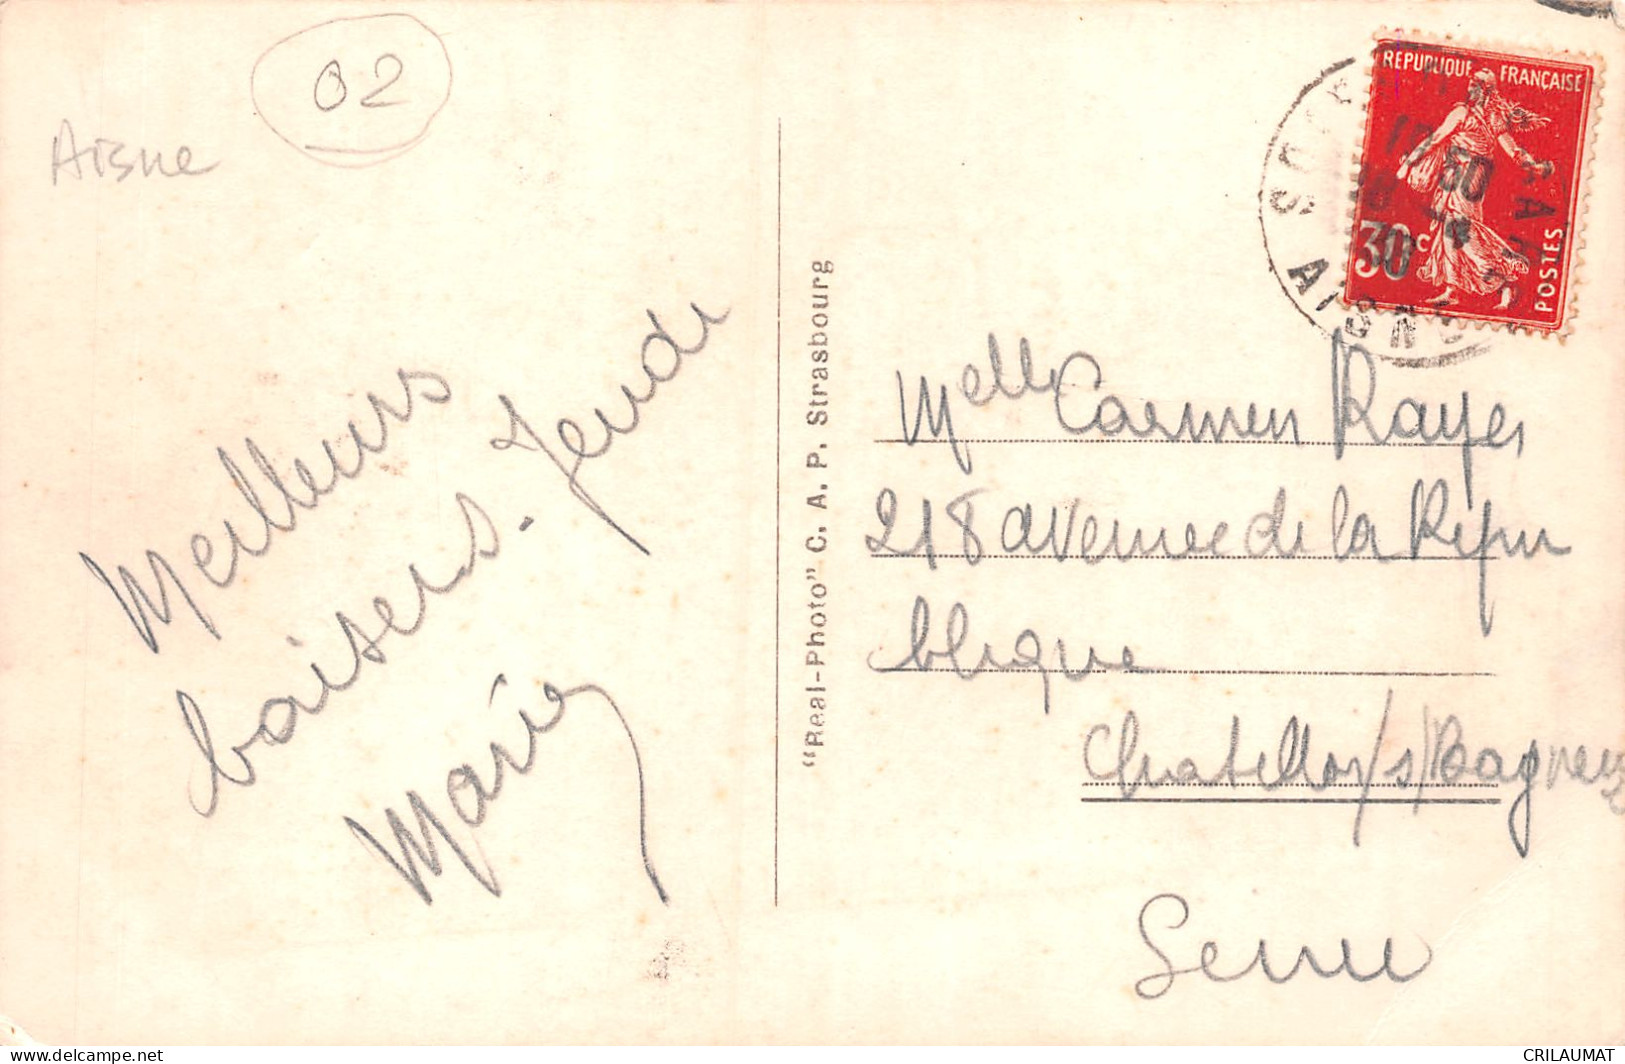 02
Aisne
Meilleurs
baisers. Jeudi
Marie
"Real-Photo" C. A. P. Strasbourg
RÉPUBLIQUE FRANÇAISE
30c
POSTES
AISNE
Melle Carmen Rayer
218 avenue de la Répu
blique
Chatillon/s/Bagneux
Seine
delcampe.net
CRILAUMAT